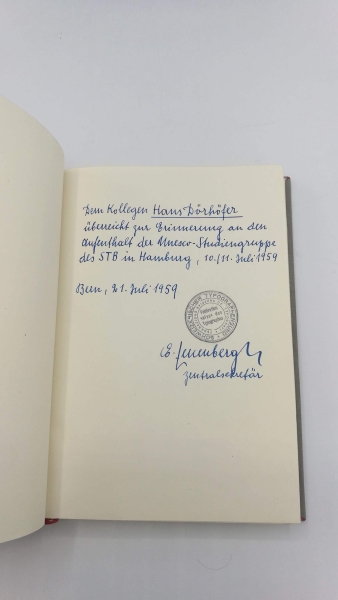 Dem Kollegen Hans Dörhöfer
überreicht zur Erinnerung an den
Aufenthalt der Unesco-Studiengruppe
des STB in Hamburg, 10./11. Juli 1959
Bern, 21. Juli 1959
SCHWEIZERISCHER TYPOGRAPHENBUND
E. Leuenberger
Zentralsekretär